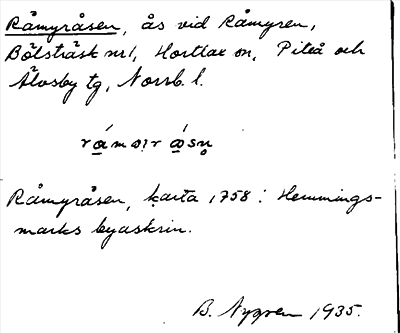 Råmyråsen, ås vid Råmyren,
Bölsträsk nr 1, Hortlax sn, Piteå och
Älvsby tg, Norrb. l.
Råmyråsen, karta 1758: Hemmings-
marks byaskrin.
B. Nygren 1935.